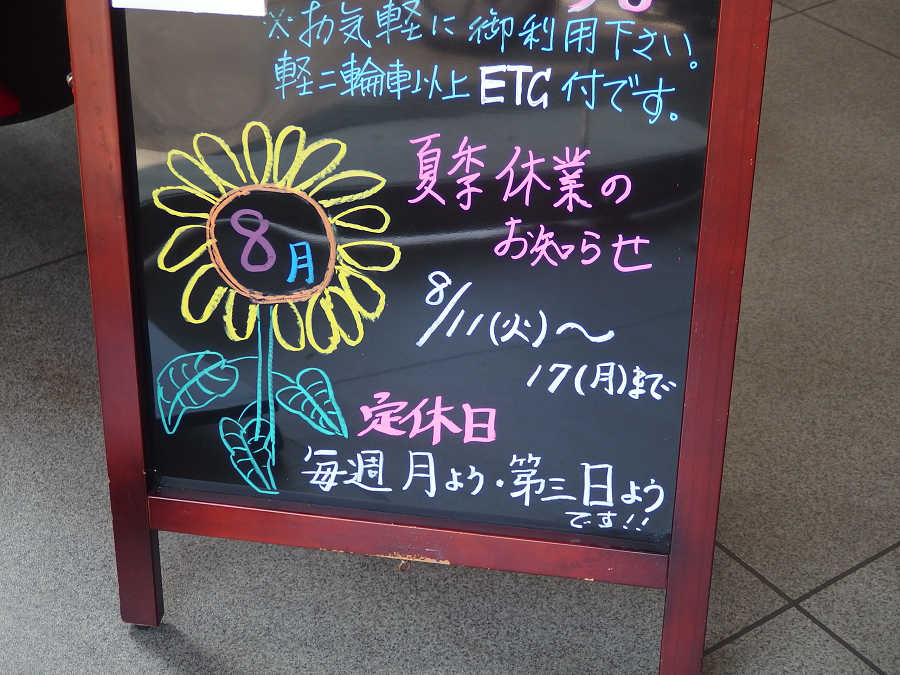 ※お気軽に御利用下さい。
軽二輪車以上ETC付です。
8月
夏季休業の
お知らせ
8/11(火)～
17(月)まで
定休日
毎週月よう・第三日よう
です!!